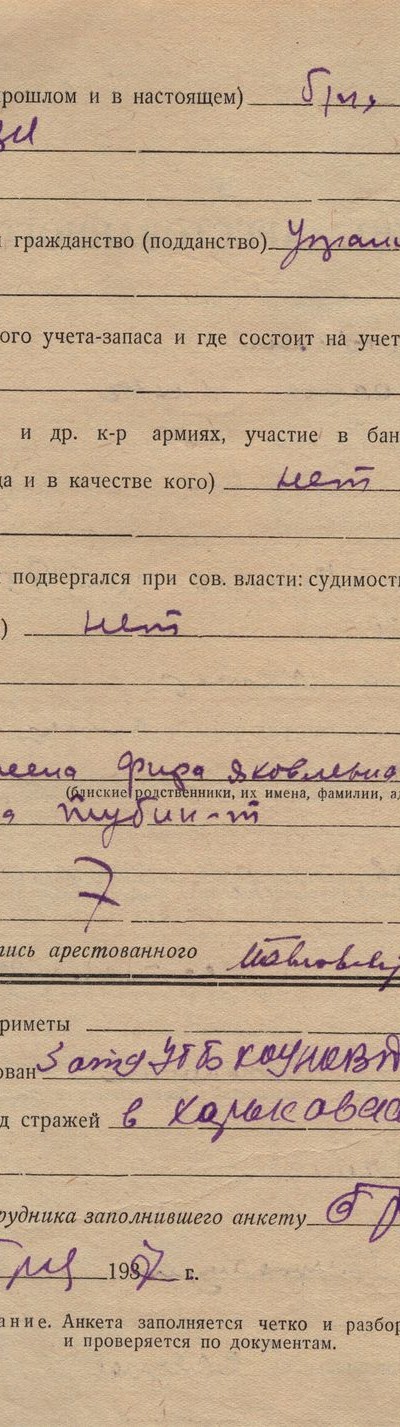 рошлом и в настоящем)
гражданство (подданство)
ого учета-запаса и где состоит на учет
и др. к-р армиях, участие в бан
да и в качестве кого) нет
подвергался при сов. власти: судимост
) нет
Фрида Яковлевна
(близкие родственники, их имена, фамилии, ад
7
ись арестованного
риметы
ован 3 отд УГБ ХОУНКВД
д стражей в Харьковск
рудника заполнившего анкету
1937 г.
ание. Анкета заполняется четко и разбор
и проверяется по документам.